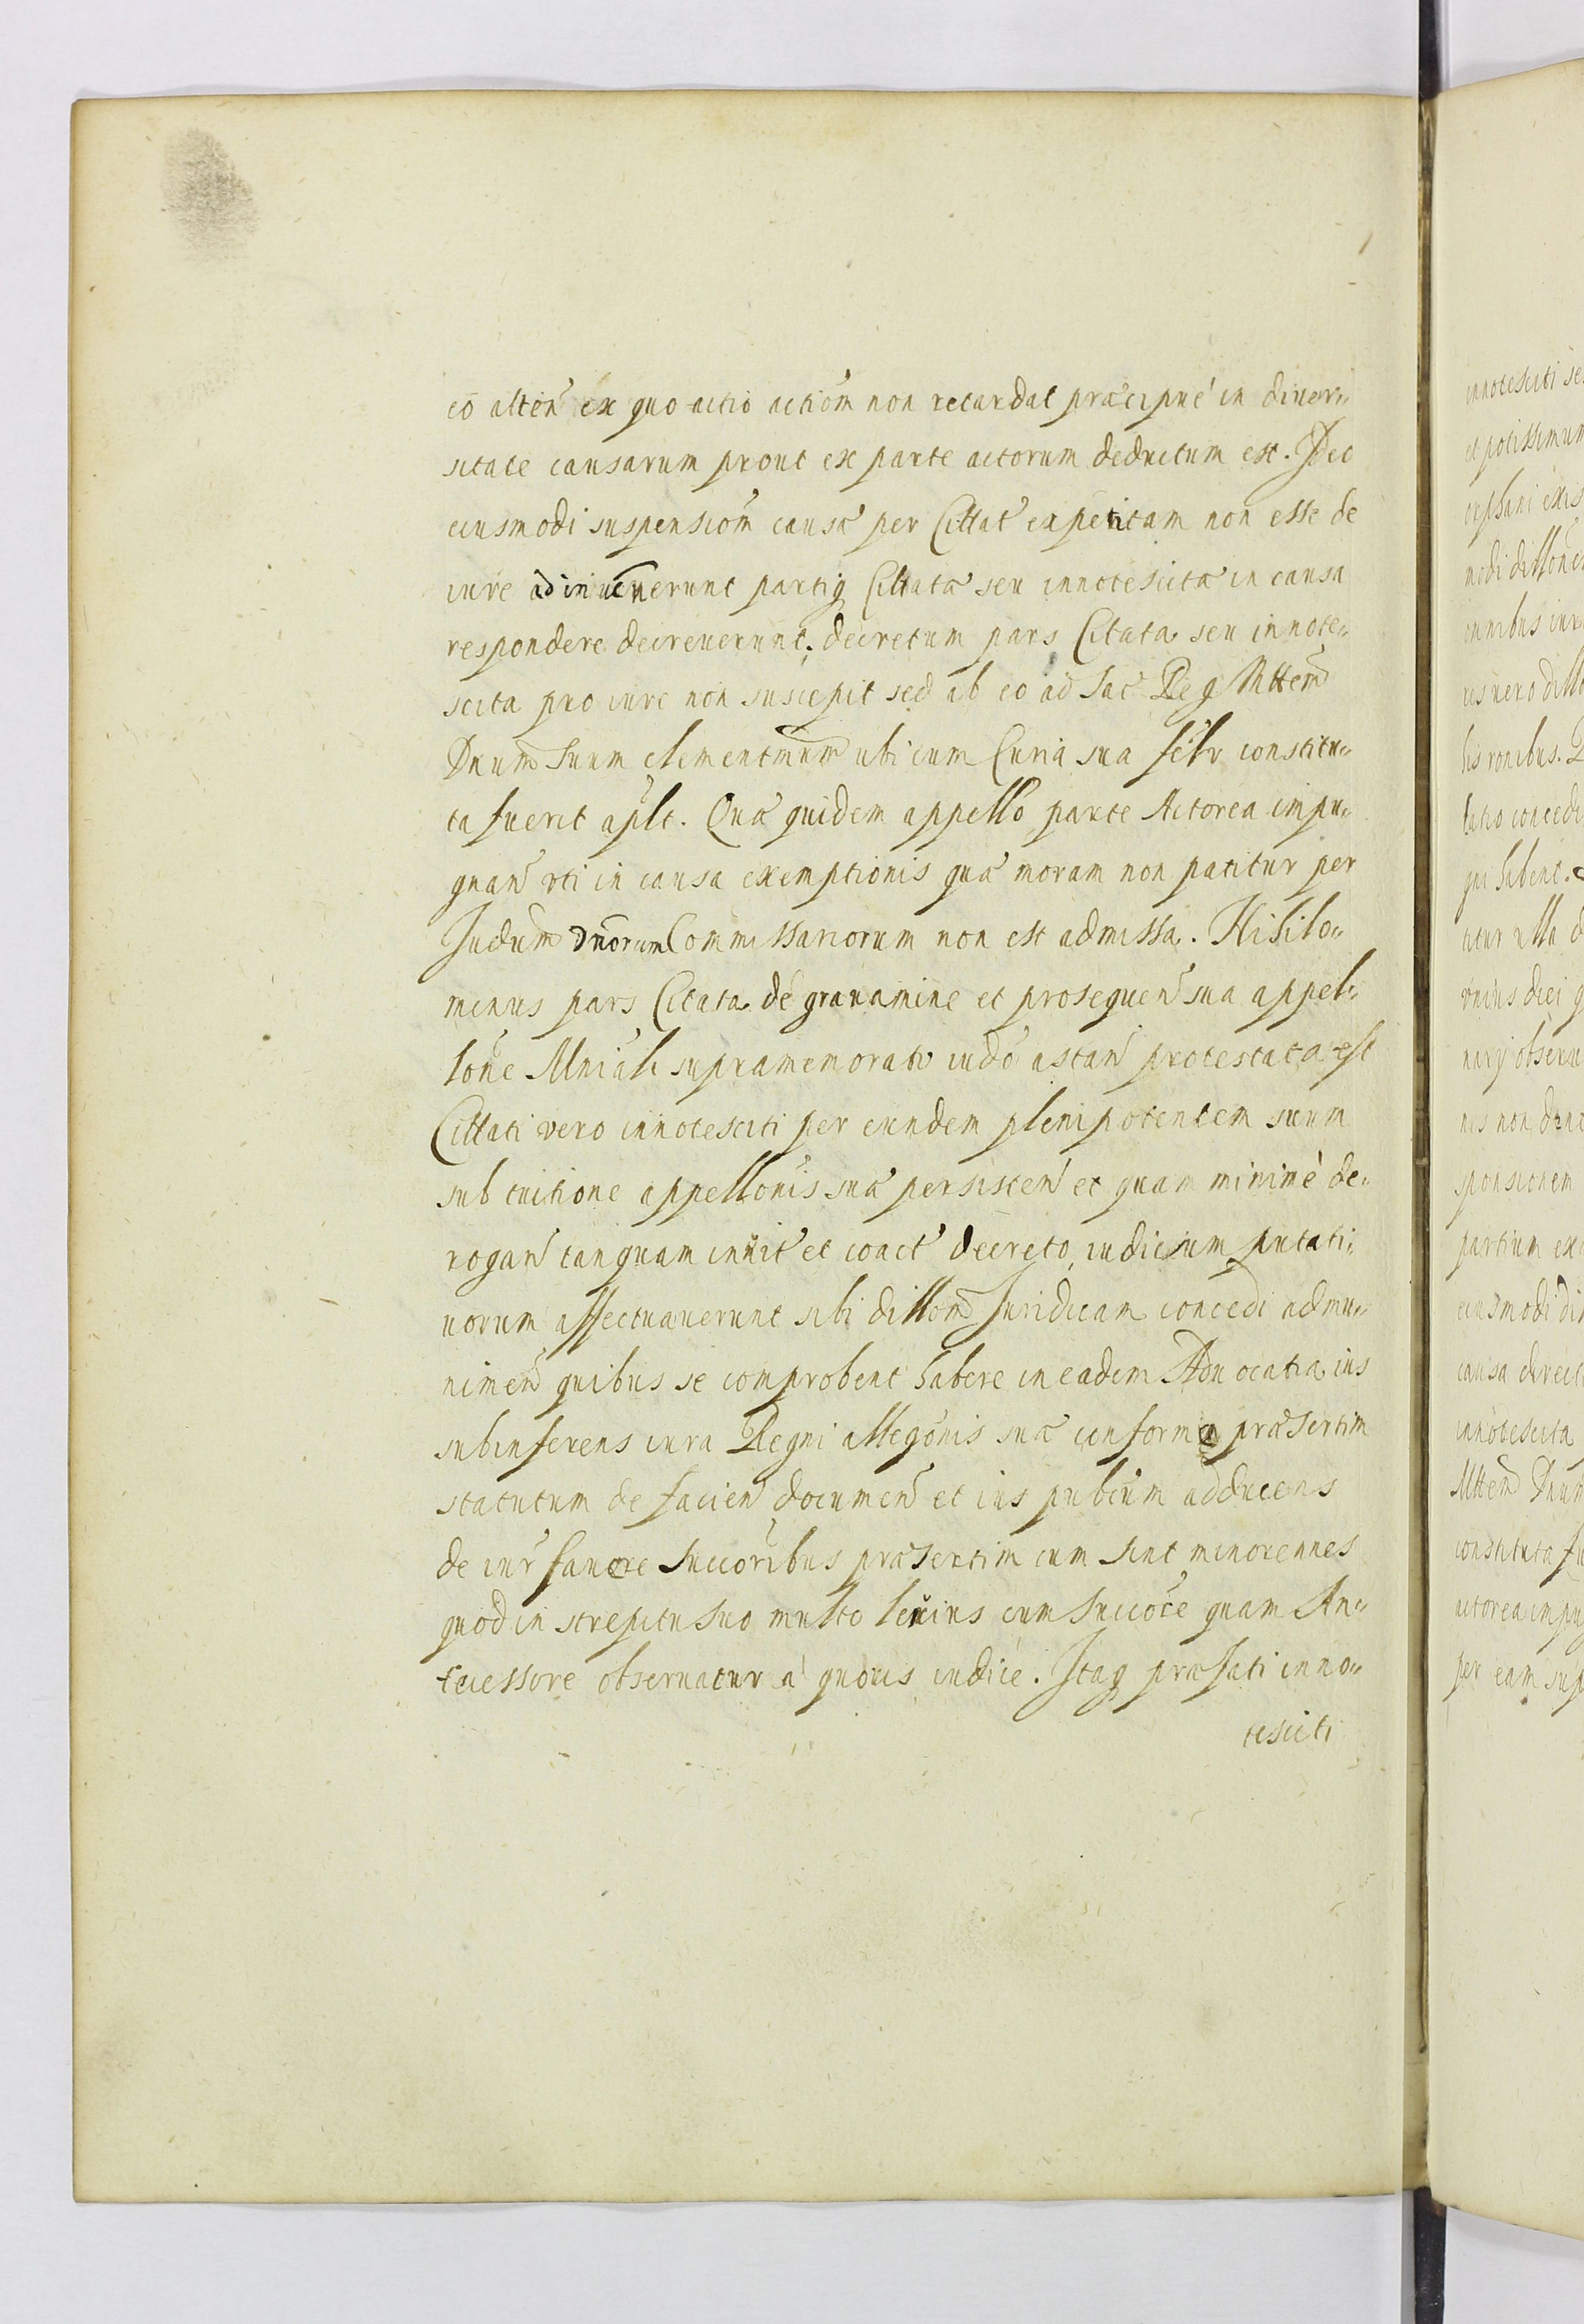 eo alten̄ ex quo actio actiōm non retardat præcipuè in diuer„
sitate causarum prout ex parte actorum deductum est. Deo
eiusmodi suspensiōm causæ per Cittat expetitam non esse de
iure adinuenerunt partiq Cittatæ seu innotescitæ in causa
respondere decreuerunt, decretum pars Citata seu innote„
scita pro iure non suscepit sed ab eo ad Sac Reg Mttem
Dnum Suum clementmum ubicum Curia sua felr constitu„
ta fuerit aplt. Quæ quidem appello parte Actorea impu„
gnan̄ vti in causa exemptionis quæ moram non patitur per
Judum Dnorum Commissariorum non est admissa. Nihilo„
minus pars Citata de grauamine et prosequen̄ sua appel„
lōne Mniali supramemorato iudō astan̄ protestata est
Cittati vero innotesciti per eundem plenipotentem suum
sub tuitione appellōnis suæ persisten̄ et quam minimè de„
rogan̄ tanquam inuit et coact decreto, iudicium putati„
uorum affectuauerunt sibi dillom̄ Juridicam concedi admu„
nimen̄ quibus se comprobent habere in eadem Aduocatia ius
subinferens iura Regni allegōnis suæ conforma præsertim
statutum de facien̄ documen̄ et ius pubcum adducens
de iur fauore Succoribus præsertim cum sint minorennes
quod in strepitu suo multo leuius cum Succōre quam An„
tecessore obseruatur à quouis iudice. Itaq præfati inno„
tesciti
innotesciti se
et potissimum
orphani exis
modi dillōnem
omnibus iur
his ronibus.
latio concedi
qui habent.
titur ulla d
unius diei q
narij obseru
nis non
sponsionem
partium ex
eiusmodi di
causa direct
innotescita
Mttem Dnum
constituta fu
actorea impug
per eam sup